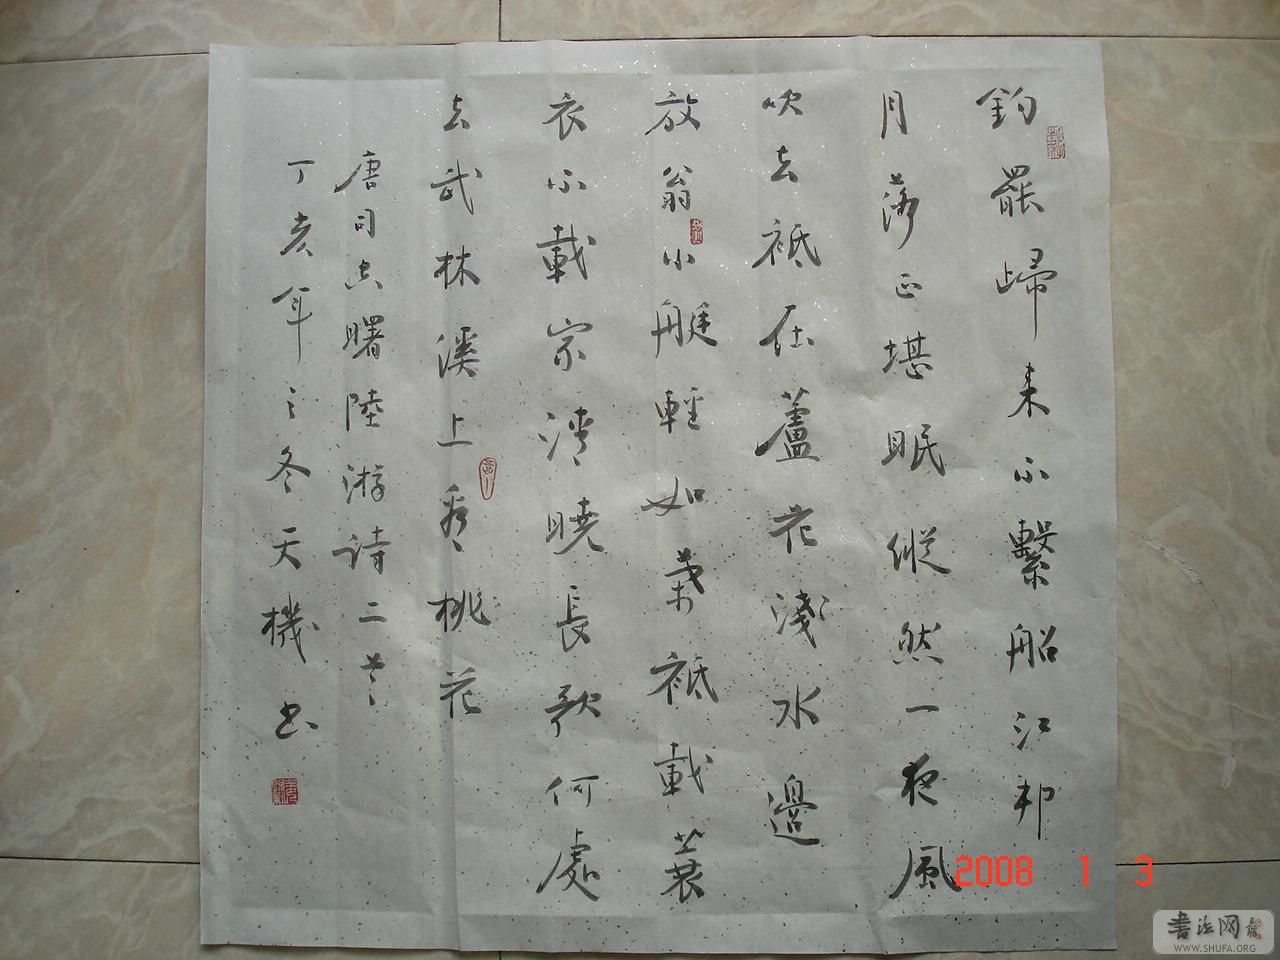 釣罷歸來不繫船江邨
月落正堪眠縱然一夜風
吹去祗在蘆花淺水邊
放翁小艇輕如葉祗載蓑
衣不載家清曉長歌何處
去武林溪上看桃花
唐司空曙陸游詩二首
丁亥年之冬天機书
2008 1 3
書法网
WWW.SHUFA.ORG